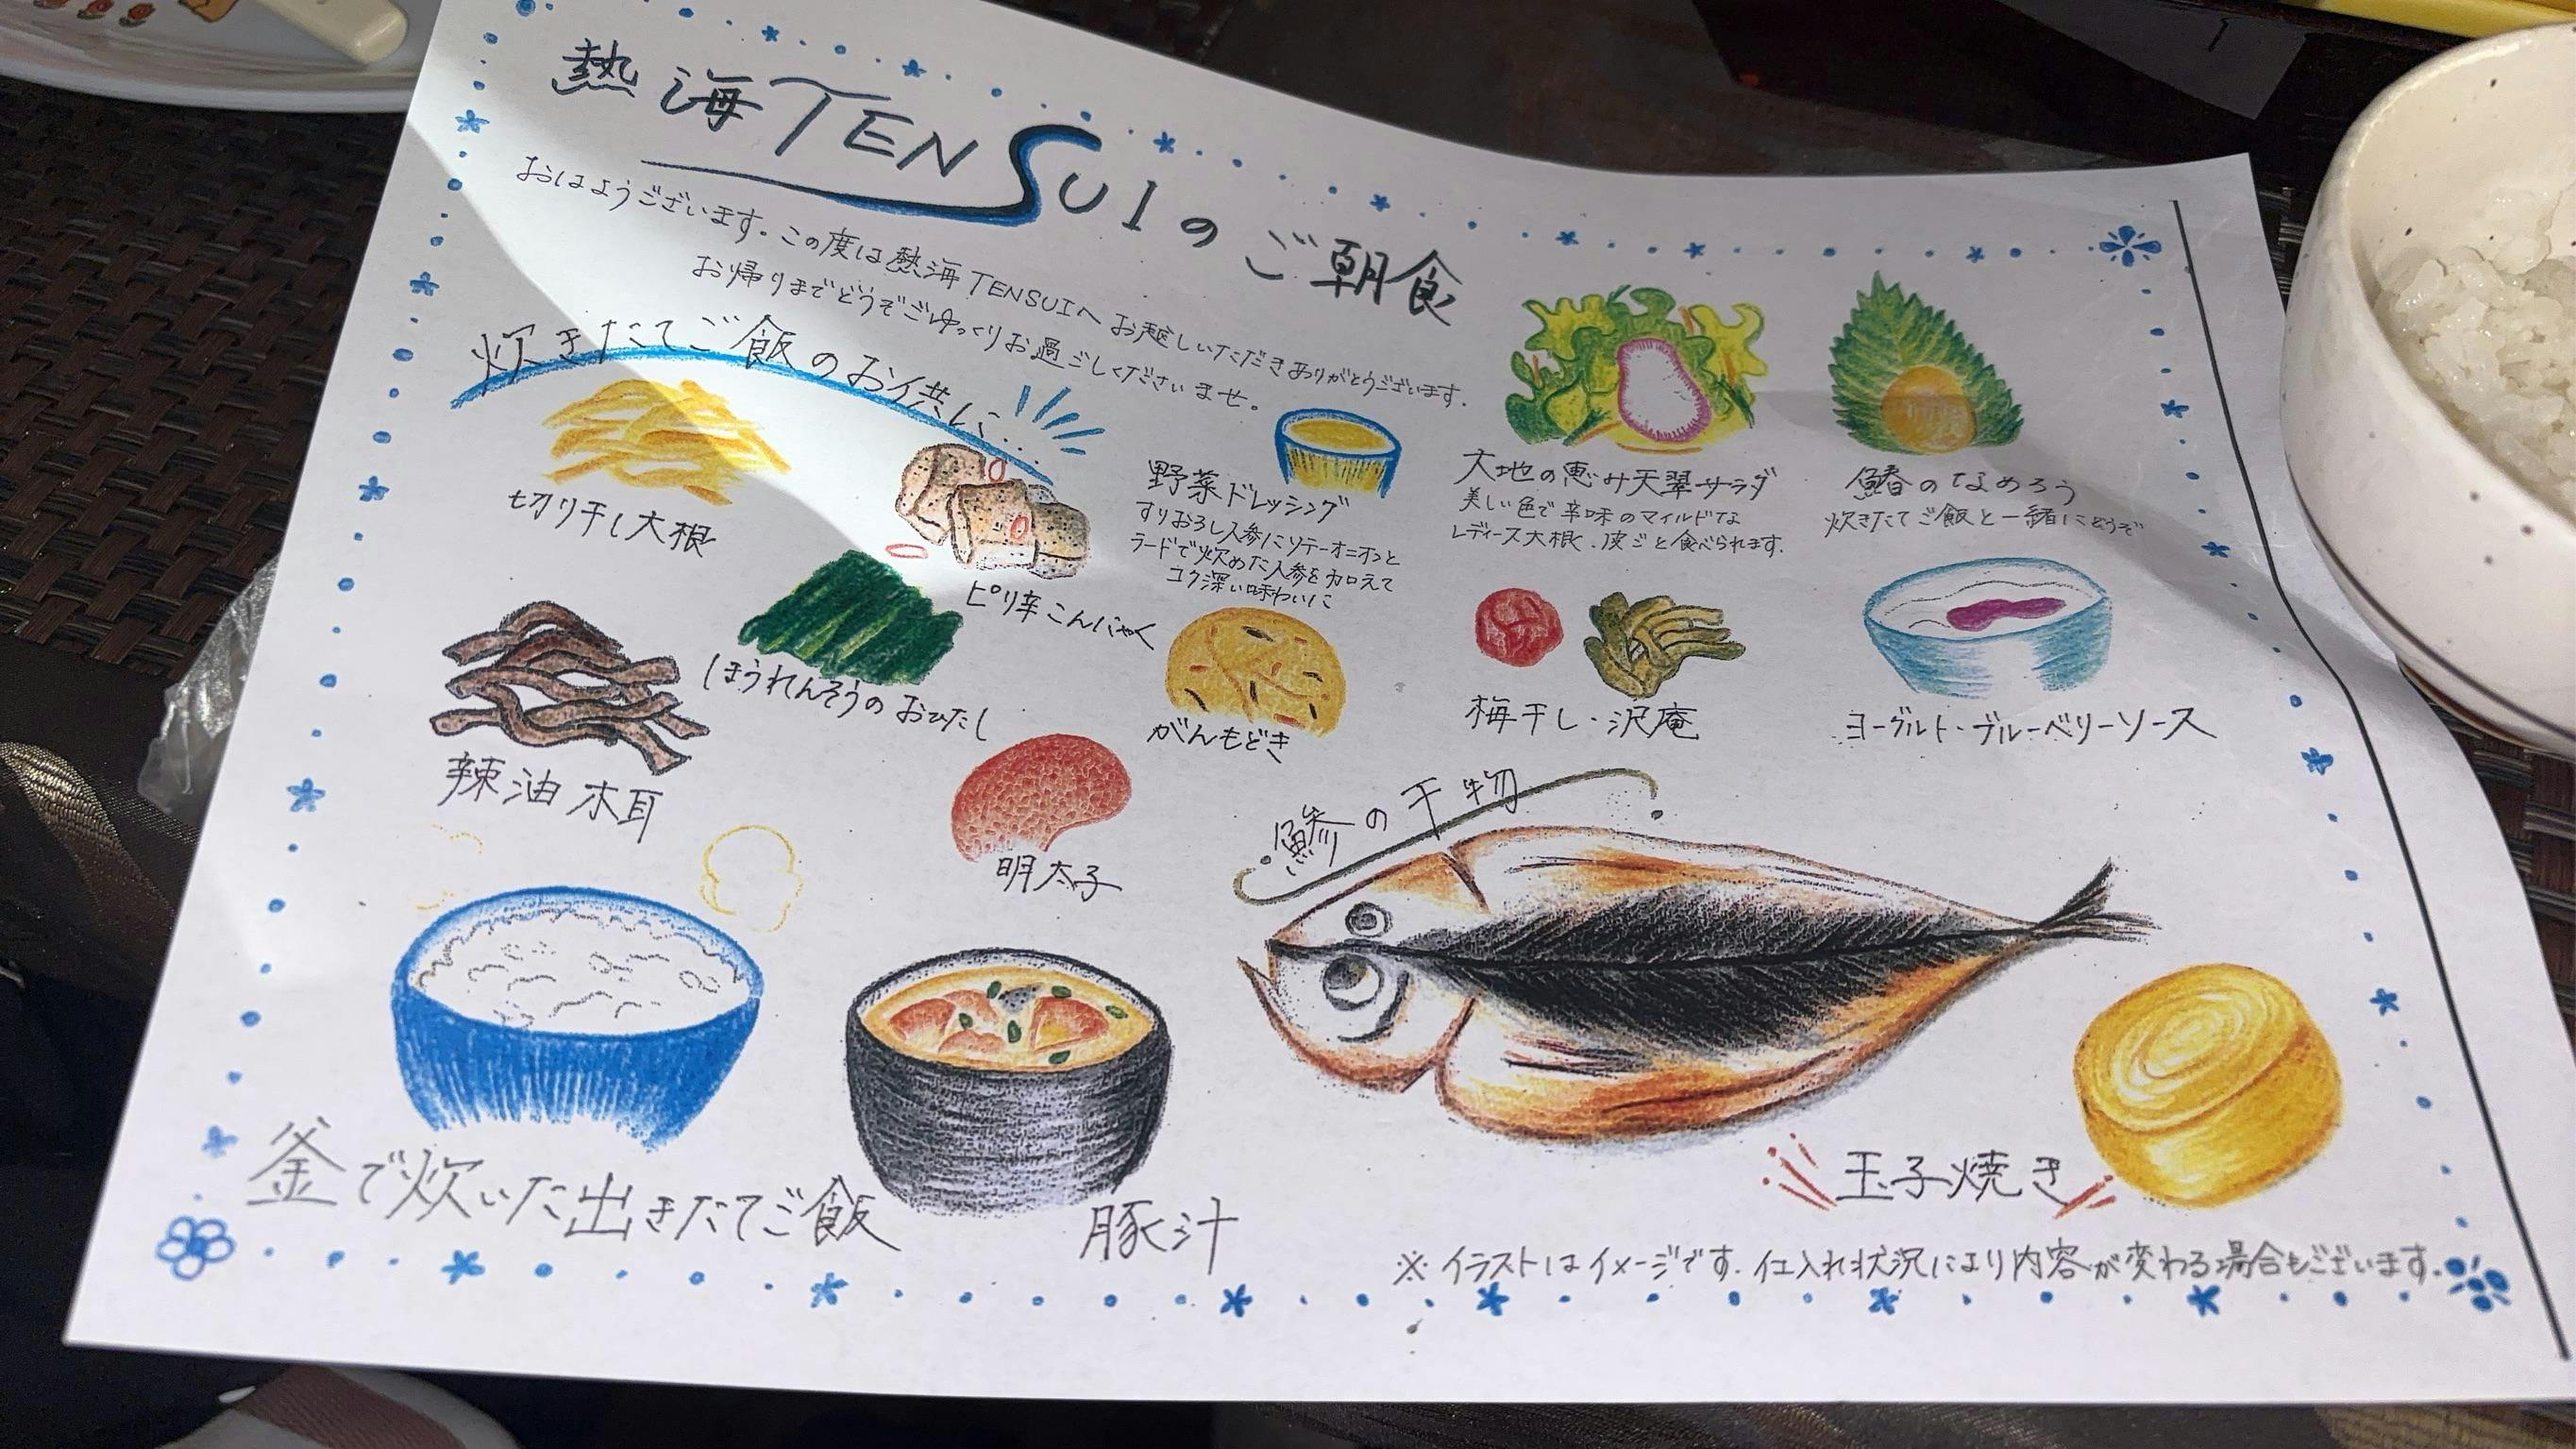 熱海TENSUIのご朝食
おはようございます。この度は熱海TENSUIへお越しいただきありがとうございます。
お帰りまでどうぞごゆっくりお過ごしくださいませ。
炊きたてご飯のお供に…
切り干し大根
ピリ辛こんにゃく
ほうれんそうのおひたし
辣油木耳
明太子
野菜ドレッシング
すりおろし人参にソテーオニオンと
ラードで炊めた人参を加えて
コク深い味わいに
がんもどき
大地の恵み天翠サラダ
美しい色で辛味のマイルドな
レディース大根、皮ごと食べられます。
鰆のなめろう
炊きたてご飯と一緒にどうぞ
梅干し・沢庵
ヨーグルト・ブルーベリーソース
鯵の干物
釜で炊いた出きたてご飯
豚汁
玉子焼き
※イラストはイメージです。仕入れ状況により内容が変わる場合もございます。